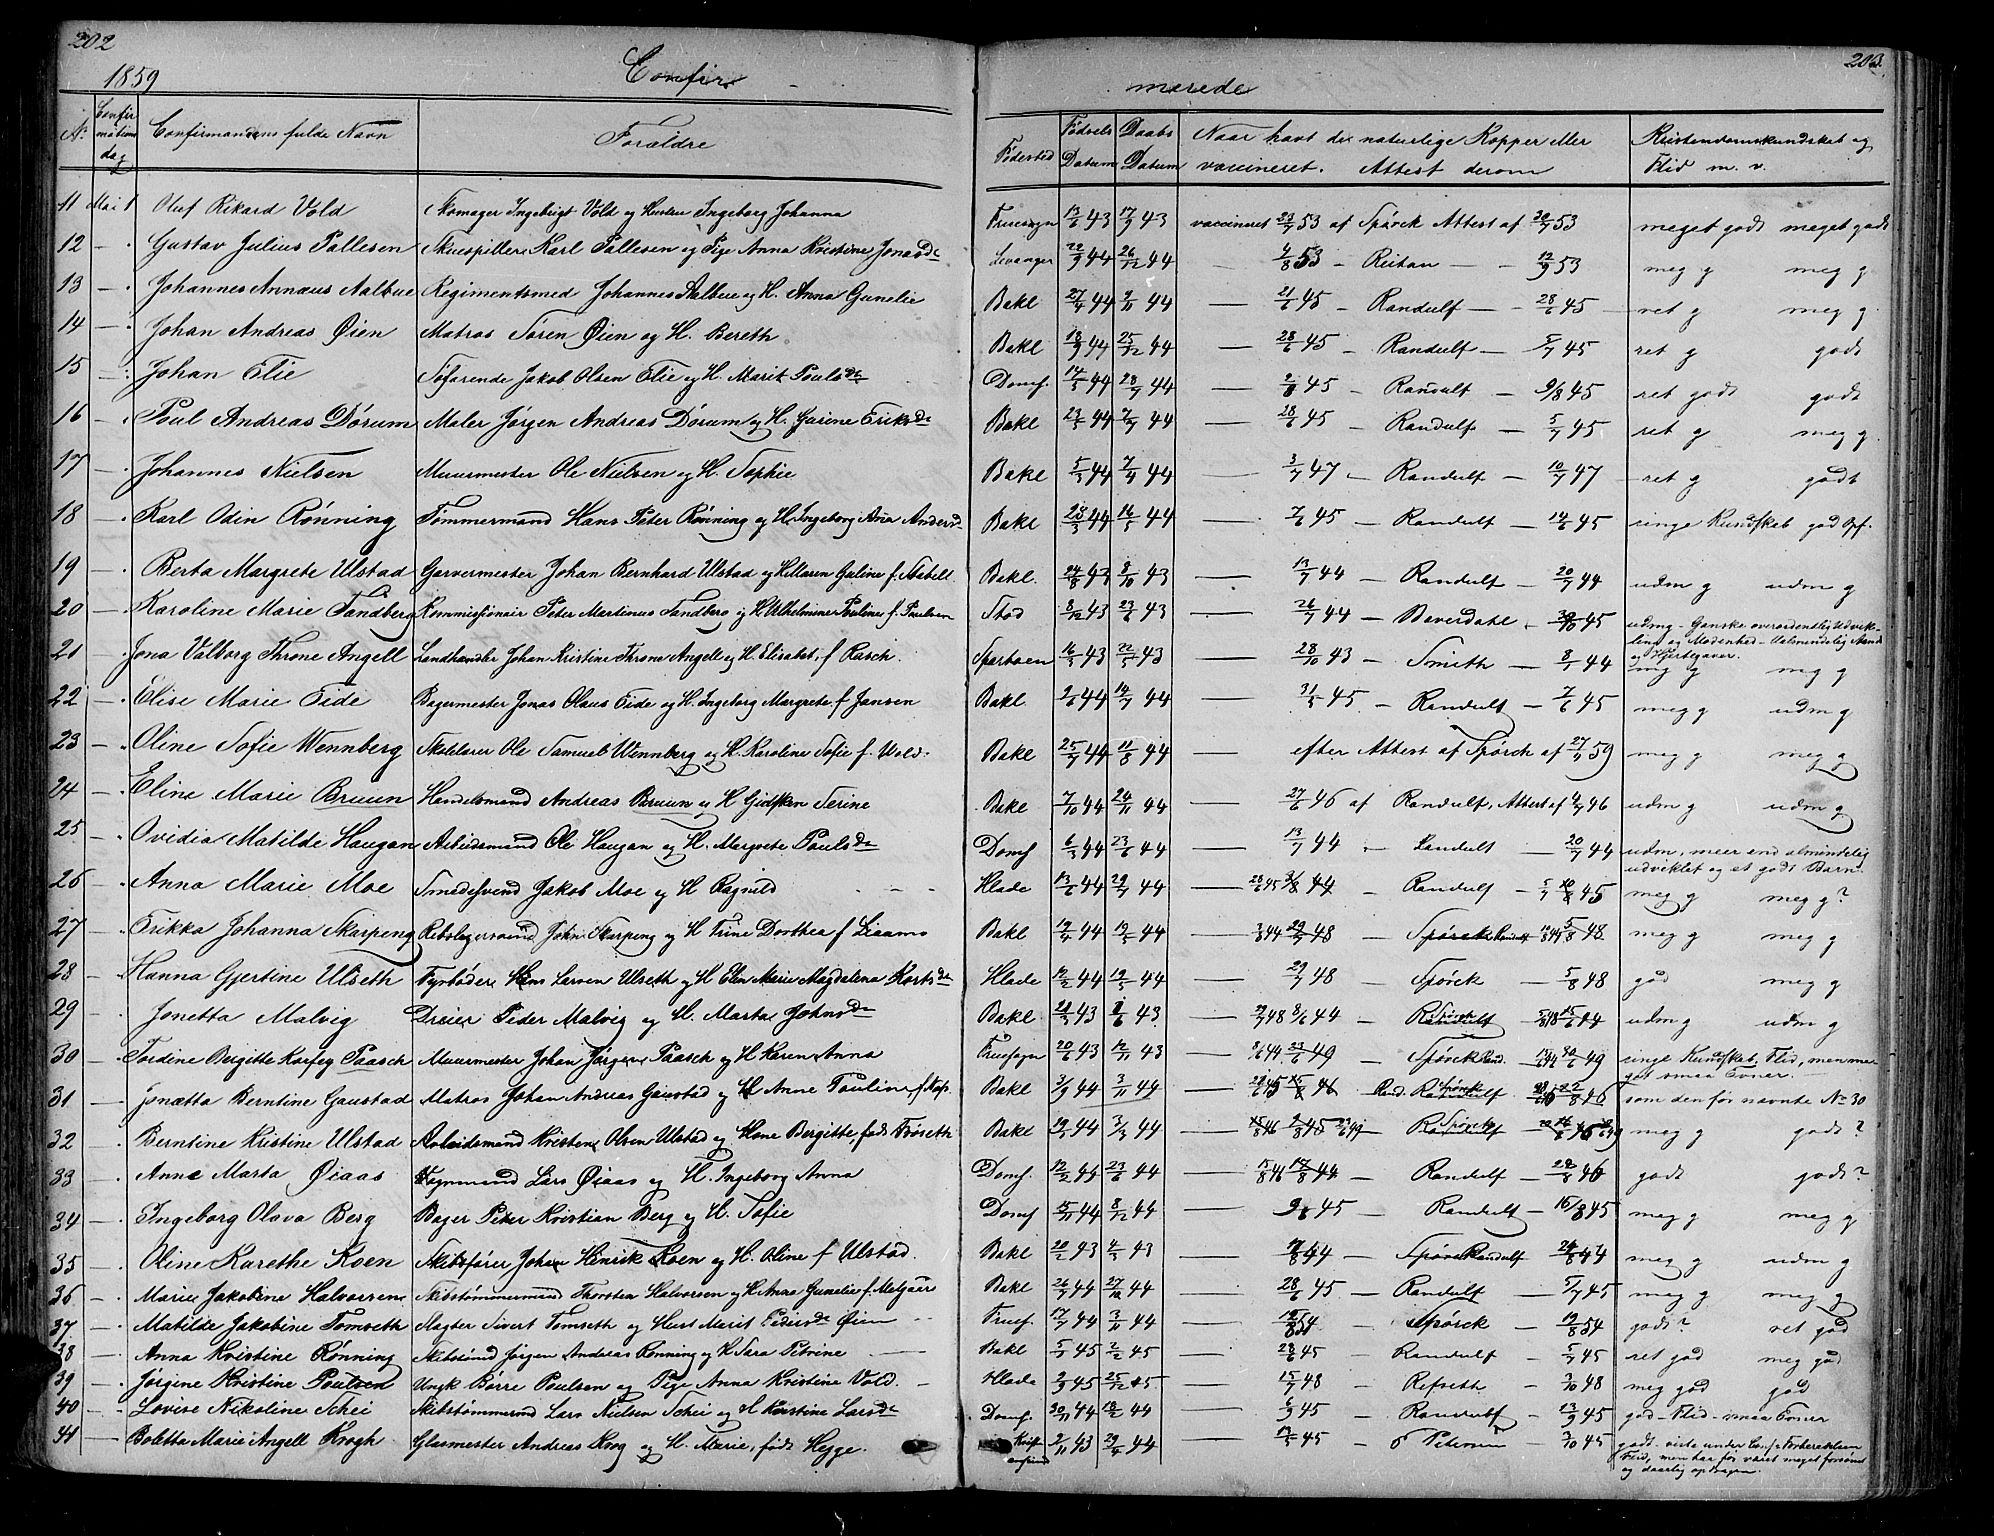 202
1859
Confir
marede
203.
No
Confir
mations
dag
Confirmandens fulde Navn
Forældre
Fødested
Fødsels
Datum
Daabs
Datum
Naar havt de naturlige Kopper eller
vaccineret. Attest derom
Kristendomskundskab og
Flid m. v.
11 Mai 1 Oluf Rikard Vold Skomager Ingebrigt Vold og Hustru Ingeborg Johanna Fruesogn 13/6 43 17/9 43 vaccineret 53 af Spørck Attest af 53 meget godt meget godt
12 — Gustav Julius Pallesen Skuespiller Karl Pallesen og Pige Anna Kristine Jonasdr Levanger 22/9 44 26/12 44 — 4/8 53 — Reitan — 12/9 53 meg g meg g
13 — Johannes Annæus Aalbue Regimentsmed Johannes Aalbue og H. Anna Gunelie Bakl 27/4 44 9/11 44 — 21/6 45 — Randulf — 28/6 45 ret g meg g.
14 — Johan Andreas Øien Matros Søren Øien og H. Bereth Bakl 13/9 44 25/12 44 — 28/6 45 — Randulf — 5/7 45 ret g godt
15 — Johan Elie Søfarende Jakob Olsen Elie og H. Marit Poulsdr Domf. 14/5 44 28/7 44 — 2/8 45 — Randulf — 9/8 45 ret godt godt
16 — Poul Andreas Dørum Maler Jørgen Andreas Dørum og H. Gurine Eriksdr Bakl 23/5 44 7/7 44 — 28/6 45 Randulf — 5/7 45 ret g meg g.
17 — Johannes Nielsen Muurmester Ole Nielsen og H. Sophie Bakl 5/3 44 7/4 44 — 3/7 47 — Randulf — 10/7 47 — ret g godt
18 — Karl Odin Rønning Tømmermand Hans Peter Rønning og H. Ingeborg Ana Andersdr Bakl 28/3 44 16/5 44 — 7/6 45 — Randulf — 14/6 45 ringe Kundskab god Opf.
19 — Berta Margrete Ulstad Garvermester Johan Bernhard Ulstad og H. Maren Guline f. Aabell Bakl. 24/8 43 8/10 43 — 13/7 44 — Randulf — 20/7 44 udm g udm g
20 — Karoline Marie Sandberg Kommissionair Peter Martinus Sandberg og H. Vilhelmine Pouline f. Poulsen Stod 8/12 43 23/6 43 — 26/7 44 — Beverdahl — 45 udmg — Ganske overordentlig Udvik-
ling og Modenhed — Ualmindelig Aands
og Hjertegaver.
21 — Jona Valborg Throne Angell Landhandler Johan Kristine Throne Angell og H. Elisabet f. Rasch. Sparboen 16/3 43 22/5 43 — 28/10 43 — Smith — 8/1 44 mg g meg g
22 — Elise Marie Eide Bagermester Jonas Olaus Eide og H. Ingeborg Margrete f Jansen Bakl 2/6 44 14/7 44 — 31/5 45 — Randulf — 7/6 45 meg g udm g
23 — Oline Sofie Wennberg Skolelærer Ole Samuel Wennberg og H. Karoline Sofie f. Wold Bakl 25/7 44 11/8 44 — efter Attest af Spørck af 27/4 59 meg g meg g
24 — Eline Marie Bruun Handelsmand Andreas Bruun og H Gidsken Serine Bakl 7/10 44 24/11 44 — 27/6 46 af Randulf, Attest af 4/7 46 udm g udm g
25 — Ovidia Matilde Haugan Arbeidsmand Ole Haugan og H. Margrete Poulsdr Domf 6/3 44 23/6 44 — 13/7 44 — Randulf — 20/7 44 udm, meer end almindelig
udviklet og et godt Barn.
26 — Anna Marie Moe Smedesvend Jakob Moe og H Ragnild Hlade 13/6 44 29/7 44 — 45 44 — Randulf — 45 meg g meg g?
27 — Erikka Johanna Skarpeng Rebslagersvend John Skarpeng og H Trine Dorthea f Liaamo Bakl 12/4 44 19/5 44 — 44 48 — Spørck Randulf 44 48 meg g meg g
28 — Hanna Gjertine Ulseth Fyrbøder Hans Larsen Ulseth og H Elen Marie Magdalena Kortsdr Hlade 12/2 44 19/5 44 — 29/7 48 — Spørck — 5/8 48 god meg g
29 — Jonetta Malvig Dreier Peder Malvig og H. Marta Johnsdr Bakl 43 43 — 48 8/6 44 — Spørck Randulf — 48 44 udm g udm g
30 — Tordine Bergitte Korfeg Paasch Muurmester Johan Jørgen Paasch og H Karen Anna Fruesogn 20/6 43 12/11 43 — 8/6 44 49 — Spørck Rand. 44 49 ringe Kundskab, Flid, men me-
get smaa Evner.
31 — Jonætta Berntine Gaustad Matros Johan Andreas Gaustad og H Anne Pouline f. Bakl 3/9 44 3/11 44 — 45 46 — Rand. Spørck Randulf 46 som den før nævnte No 30
32 — Berntine Kristine Ulstad Arbeidsmand Kristen Olsen Ulstad og Kone Bergitte, født Frøseth Bakl 19/1 44 3/3 44 — 46 45 — Spørck Randulf meg g godt?
33 — Anne Marta Øiaas Lars Øiaas og H. Ingeborg Anna Domf. 12/2 44 23/6 44 — 46 44 — Randulf — 46 godt godt?
34 — Ingeborg Olava Berg Bager Peter Kristian Berg og H. Sofie Domf 15/11 44 8/12 44 — 9/8 45 — Randulf — 16/8 45 meg g meg g
35 — Oline Karethe Koen Skibsfører Johan Henrik Koen og H. Oline f Ulstad. Bakl 20/2 43 4/5 43 — 17/8 44 — Spørck Randulf 24/8 44 meg g udm g
36 — Marie Jakobina Halvorsen Skibstømmermand Thorsten Halvorsen og H Anna Gunelie f. Melgaar Bakl 26/7 44 27/10 44 — 28/6 45 — Randulf — 5/7 45 meg g meg g
37 — Matilde Jakobine Tomseth Slagter Sivert Tomseth og Hust Marit Pedersdr Øien Fruesf. 17/7 44 3/11 44 — 12/8 54 — Spørck — 19/8 54 godt? ret god
38 — Anna Kristine Rønning Skibstømd Jørgen Andreas Rønning og H Sara Petrine Bakl 5/1 45 2/2 45 — 28/6 45 — Randulf — 5/7 45 ret god meg god
39 — Jørgine Kristine Poulsen Ungk Børre Poulsen og Pige Anna Kristine Vold. Hlade 2/9 45 25/12 45 — 15/7 48 — Refseth — 3/10 48 meg god god
40 — Lovise Nikoline Schei Skibstømmermd Lars Nielsen Schei og H Kirstine Larsdr Domf. 20/11 44 18/2 44 — 6/9 45 — Randulf — 13/9 45 god — Flid — smaa Evner
41 — Boletta Marie Angell Krogh Glasmester Andreas Krog og H. Marie, født Hegge. Krist-
iansund 2/11 43 29/4 44 — 17/5 45 — Petersen — 3/10 45 godt — viste under Conf. Forberedelsen
Flid, men har før været meget forsømt
og daarlig opdragen.